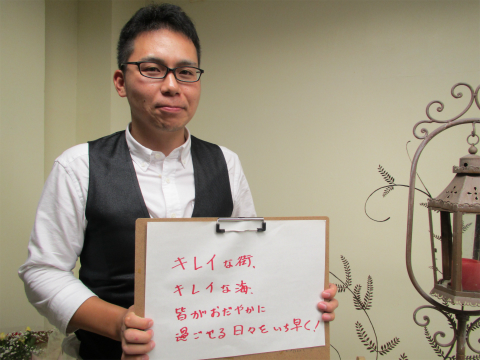 キレイな街、
キレイな海、
皆がおだやかに
過ごせる日々をいち早く!